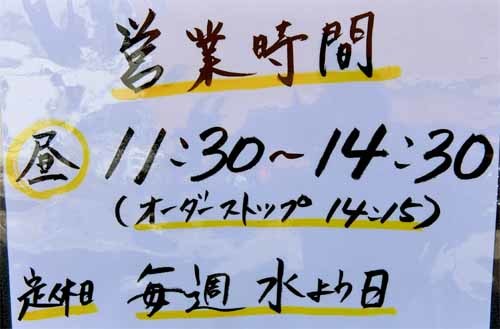 営業時間
昼 11:30~14:30
(オーダーストップ 14:15)
定休日 毎週 水より日